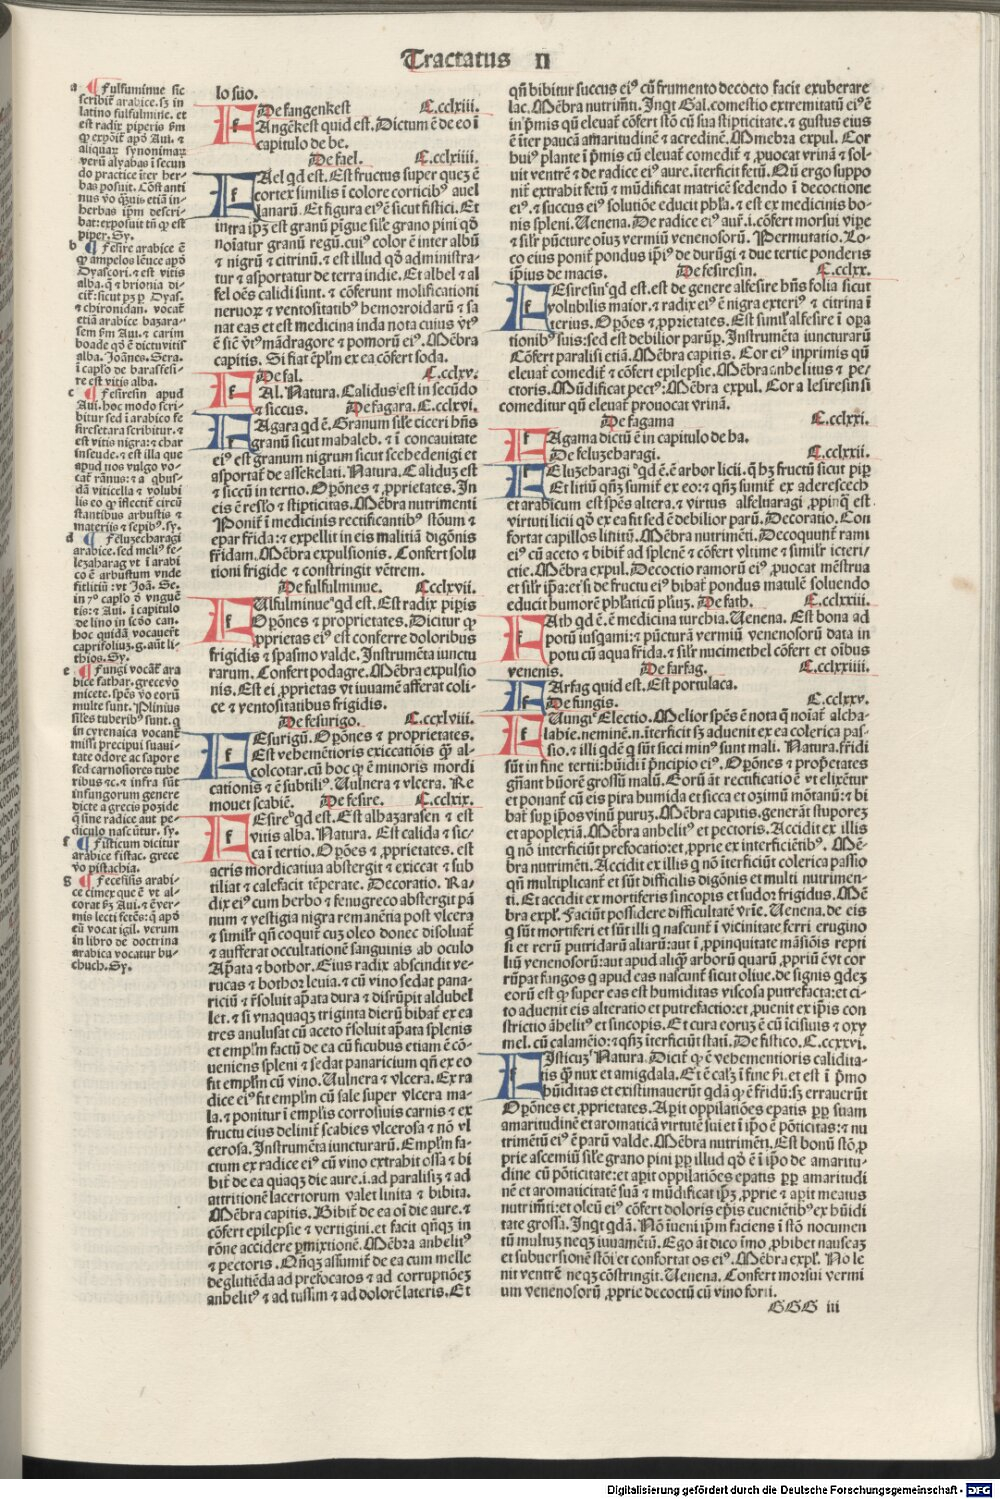 Tractatus II
a ¶ Fulfuminue sic
scribit᷑ arabice. sꝫ in
latino fulfulmine. et
est radix piperis s̄m
ꝙ expoīt᷑ apđ Aui. ⁊
aliquar̄ synonimax
verū alyabas ī secun
do practice iter her-
bas posuit. Cōst anti
nus vo q̄uis etiā in-
herbas ip̄m descri-
bat: exposuit tn̄ ꝙ est
piper. Sy.
b ¶ Fesire arabice ē
ꝙ ampelos lēuce apđ
Dyascori. ⁊ est vitis
alba. q̄ ⁊ brionia di-
cit᷑: sicut pꝫ p̱ Dyas.
⁊ chironidan. vocat᷑
etiā arabice bazara-
sem s̄m Aui. ⁊ carim
boade qđ ē dictuvitis
alba. Joānes. Sera.
ī caplo de barassesi-
re est vitis alba.
c ¶ Fesiresin apud
Aui. hoc modo scri-
bitur sed ī arabico fe
siresetara scribitur. ⁊
est vitis nigra: ⁊ char
inseude. ⁊ est illa que
apud nos vulgo vo-
cat᷑ rānus: ⁊ a q̄bus-
dā viticella ⁊ volubi
lis eo ꝙ īflectit᷑ circū
stantibus arbustis ⁊
materiis ⁊ sepibꝰ. sy.
d ¶ Feluzecharagi
arabice. sed meliꝰ fe-
lezabarag vt ī arabi
co ē arbustum vnde
fit licīu: vt Joā. Se.
in .7o caplo đ vnguē
tis: ⁊ Aui. ī capitulo
de lino in scđo can.
hoc quidā vocauer̄t
caprifoliuꝫ. g. aūt li-
thios. Sy.
e ¶ Fungi vocāt᷑ ara
bice fathar. grece vo
micete. spēs vo eorū
multe sunt. Plinius
siles tuberibꝰ sunt. q
in cyrenaica vocant᷑
missi precipui suaui-
tate odore ac sapore
sed carnosiores tube
ribus ⁊c. ⁊ infra sūt
infungorum genere
dicte a grecis pozide
q̄ sine radice aut pe-
diculo nascūtur. sy.
f ¶ Fisticum dicitur
arabice fistac. grece
vo pistachia.
g ¶ Fecefisis arabi-
ce cimex que ē vt al-
corat s̄ꝫ Aui. ⁊ ē ver-
mis lecti fetēs: q̄ apđ
eū vocat igil. verum
in libro de doctrina
arabica vocatur bu-
chuch. Sy.
lo suo.
De fangenkest C.cclxiii.
FAngēkest quid est. Dictum ē de eo ī
capitulo de be.
De fael. C.cclxiiii.
FAel qđ est. Est fructus super quez ē
cortex similis ī colore corticibꝰ auel
lanarū. Et figura eiꝰ ē sicut fistici. Et
intra ip̄ꝫ est granū pīgue sile grano pini qđ
noiatur granū regū. cuiꝰ color ē inter albū
⁊ nigrū ⁊ citrinū. ⁊ est illud qđ administra-
tur ⁊ asportatur de terra indie. Et albel ⁊ al
fel oēs calidi sunt. ⁊ cōferunt molificationi
neruox̄ ⁊ ventositatibꝰ hemorroidarū ⁊ sa
nat eas et est medicina inda nota cuius vtꝰ
ē sic̄ vtꝰ mādragore ⁊ pomorū eiꝰ. Mēbra
capitis. Si fiat ēplm̄ ex ea cōfert soda.
De fal. C.cclxv.
FAl. Natura. Calidus est in secūdo
⁊ siccus. De fagara. C.cclxvi.
FAgara qđ ē. Granum sile ciceri hn̄s
granū sicut mahaleb. ⁊ ī concauitate
eiꝰ est granum nigrum sicut scehedenigi et
asportat᷑ de assekelati. Natura. Caliduꝫ est
⁊ siccū in tertio. Opōnes ⁊ ꝓprietates. In
eis ē reslo ⁊ stipticitas. Mēbra nutrimenti
Ponit᷑ ī medicinis rectificantibꝰ stōum ⁊
epar fridа: ⁊ expellit in eis malitiā digōnis
fr̄idam. Mēbra expulsionis. Confert solu
tioni frigide ⁊ constringit vētrem.
De fulfulminue. C.cclxvii.
FUlfulminue qđ est. Est radix pip̄is
Opōnes ⁊ proprietates. Dicitur ꝙ
ꝓprietas eiꝰ est conferre doloribus
frigidis ⁊ spasmo valde. Instrumēta iunctu
rarum. Confert podagre. Mēbra expulsio
nis. Est ei ꝓprietas vt iuuamē afferat coli-
ce ⁊ ventositatibus frigidis.
De fesurigo. C.ccxlviii.
FEsurigū. Opōnes ⁊ proprietates.
Est vehemētioris exiccatiōis q̄ al-
colcotar. cū hoc ꝙ ē minoris mordi
cationis ⁊ ē subtilꝰ. Uulnera ⁊ vlcera. Re
mouet scabiē. De fesire. C.cclxix.
FEsire qđ est. Est albazarasen ⁊ est
vitis alba. Natura. Est calida ⁊ sic-
ca ī tertio. Opōes ⁊ ꝓprietates. est
acris mordicatiua abstergit ⁊ exiccat ⁊ sub
tiliat ⁊ calefacit tēperate. Decoratio. Ra-
dix eiꝰ cum herbo ⁊ fenugreco abstergit pā
num ⁊ vestigia nigra remanētia post vlcera
⁊ similr̄ qn̄ coquit᷑ cuꝫ oleo donec disoluat᷑
⁊ aufferat occultationē sanguinis ab oculo
Ap̄ata ⁊ bothor. Eius radix abscindit ve-
rucas ⁊ bothor leuia. ⁊ cū vino sedat pana-
riciū ⁊ r̄soluit ap̄ata dura ⁊ disrūpit aldubel
let. ⁊ si vnaquaqꝫ triginta dierū bibat᷑ ex ea
tres anulusat cū aceto r̄soluit ap̄ata splenis
et emplm̄ factū de ea cū ficubus etiam ē cō-
ueniens spleni ⁊ sedat panaricium qn̄ ex eo
fit emplm̄ cū vino. Uulnera ⁊ vlcera. Ex ra
dice eiꝰ fit emplm̄ cū sale super vlcera ma-
la. ⁊ ponitur ī emplis corrosiuis carnis ⁊ ex
fructu eius delinit᷑ scabies vlcerosa ⁊ nō vl
cerosa. Instrumēta iuncturarū. Emplm̄ fa-
ctum ex radice eiꝰ cū vino extrahit ossa ⁊ bi
bit᷑ de ea quaqꝫ die aure. i. ad paralisiꝫ ⁊ ad
attritionē lacertorum valet linita ⁊ bibita.
Mēbra capitis. Bibit᷑ de ea oī die aure. ⁊
cōfert epilepsie ⁊ vertigini. et facit qn̄qꝫ in
rōne accidere ꝑmixtionē. Mēbra anbelitꝰ
⁊ pectoris. Qn̄qꝫ assumit᷑ de ea cum melle
deglutiēda ad prefocatos ⁊ ad corruptiōeꝫ
anbelitꝰ ⁊ ad tussim ⁊ ad dolorē lateris. Et
qn̄ bibitur succus eiꝰ cū frumento decocto facit exuberare
lac. Mēbra nutrim̄ti. Inqt Gal. comestio extremitatū eiꝰ ē
in p̄mis qn̄ eleuat᷑ cōfert stō cū sua stipticitate. ⁊ gustus eius
ē iter paucā amaritudinē ⁊ acredinē. Mmebra expul. Cor
huiꝰ plante ī p̄mis cū eleuat᷑ comedit᷑ ⁊ ꝓuocat vrinā ⁊ sol-
uit ventrē ⁊ de radice eiꝰ aure. iterficit fetū. Qn̄ ergo suppo
nit᷑ extrahit fetū ⁊ mūdificat matricē sedendo ī decoctione
eiꝰ. ⁊ succus eiꝰ solutiōe educit phla. ⁊ est ex medicinis bo-
nis spleni. Uenena. De radice eiꝰ aur̄. i. cōfert morsui vip̄e
⁊ silr̄ pūcture oīuꝫ vermiū venenosorū. Permutatio. Lo-
co eius ponit᷑ pondus ip̄iꝰ de durūgi ⁊ due tertie ponderis
ip̄ius de macis. De fesiresin. C.cclxx.
FEsiresinꝰ qđ est. est de genere alfesire hn̄s folia sicut
volubilis maior. ⁊ radix eiꝰ ē nigra exteriꝰ ⁊ citrina ī
terius. Opōnes ⁊ ꝓprietates. Est simil̄ alfesire ī opa
tionibꝰ suis: sed est debilior parūp̱. Instrumēta iuncturarū
Cōfert paralisi etiā. Mēbra capitis. Cor eiꝰ inprimis qn̄
eleuat᷑ comedit᷑ ⁊ cōfert epilepsie. Mēbra anhelitus ⁊ pe-
ctoris. Mūdificat pectꝰ: Mēbra expul. Cor alesiresin si
comeditur qn̄ eleuat᷑ prouocat vrinā.
De fagama C.cclxxi.
FAgama dictū ē in capitulo de ha.
De feluzeharagi. C.cclxxii.
FEluzeharagi qđ ē. ē arbor licii. q̄ hꝫ fructū sicut pip̱
Et litiū qn̄ꝫ sumit᷑ ex eo: ⁊ qn̄ꝫ sumit᷑ ex aderescech
et arabicum est spēs altera. ⁊ virtus alfeluaragi ꝓpinq̄ est
virtuti licii qđ ex ea fit sed ē debilior parū. Decoratio. Con
fortat capillos linitū. Mēbra nutrimēti. Decoquunt᷑ rami
eiꝰ cū aceto ⁊ bibit᷑ ad splenē ⁊ cōfert vltime ⁊ similr̄ icteri-
ctie. Mēbra expul. Decoctio ramorū eiꝰ ꝓuocat mēstrua
et silr̄ ip̄a: et si de fructu eiꝰ bibat᷑ pondus matule soluendo
educit humorē phlaticū pluꝫ. De fath. C.cclxxiii.
FAth qđ ē. ē medicina turchia. Uenena. Est bona ad
potū iusqami: ⁊ pūcturā vermiū venenosorū data in
potu cū aqua fr̄ida. ⁊ silr̄ nucimethel cōfert et oībus
venenis. De farfag. C.cclxxiiii.
FArfag quid est. Est portulaca.
De fungis. C.cclxxv.
FUungi Electio. Melior spēs ē nota q̄ noiat᷑ alcha-
labie. neminē. n. iterficit sꝫ aduenit ex ea colerica pas-
sio. ⁊ illi qdē q̄ sūt sicci minꝰ sunt mali. Natura. fr̄idi
sūt in fine tertii: hūidi ī p̄ncipio eiꝰ. Opōnes ⁊ prop̄etates
gn̄ant hūorē grossū malū. Eorū āt rectificatio ē vt elixētur
et ponant᷑ cū eis pira humida et sicca et ozimū mōtanū: ⁊ bi
bat᷑ sup̱ ip̄os vinū puruꝫ. Mēbra capitis. generāt stuporeꝫ
et apoplexiā. Mēbra anbelitꝰ et pectoris. Accidit ex illis
q̄ nō interficiūt prefocatio: et ꝓprie ex interficiētibꝰ. Mē-
bra nutrimēti. Accidit ex illis q̄ nō iterficiūt colerica passio
qn̄ multiplicant᷑ et sūt difficilis digōnis et multi nutrimen-
ti. Et accidit ex mortiferis sincopis et sudor frigidus. Mē
bra expl̄. Faciūt possidere difficultatē vrie. Uenena. de eis
q̄ sūt mortiferi et sūt illi q̄ nascunt᷑ ī vicinitate ferri erugino
si et rerū putridarū aliarū: aut ī ꝓpinquitate māsiōis repti
liū venenosorū: aut apud aliq̄s arborū quarū ꝓpriū ē vt cor
rūpat fungos q̄ apud eas nascunt᷑ sicut oliue. de signis qdeꝫ
eorū est ꝙ super eas est humiditas viscosa putrefacta: et ci-
to aduenit eis alteratio et putrefactio: et ꝓuenit ex ip̄is con
strictio ābelitꝰ et sincopis. Et cura eoruꝫ ē cū icisiuis ⁊ oxy
mel. cū calamēto: ⁊ qn̄ꝫ iterficiūt stati. De fistico. C.ccxxvi.
FIsticuꝫ Natura. Dicit᷑ ꝙ ē vehementioris calidita-
tis q̄ nux et amigdala. Et ē calꝫ ī fine s̄i. et est ī p̄mo
hūiditas et existimauer̄t qdā ꝙ ē fr̄idū: sꝫ errauer̄ūt
Opōnes et ꝓprietates. Apit oppilatiōes epatis ꝓp̱ suam
amaritudinē et aromaticā virtutē sui et ī ip̄o ē pōticitas: ⁊ nu
trimētū eiꝰ ē parū valde. Mēbra nutrimēti. Est bonū stō. ꝓ
prie ascemiū sile grano pini ꝓp̱ illud qđ ē ī ip̄o de amaritu-
dine cū pōticitate: et apit oppilatiōes epatis ꝓp̱ amaritudi
nē et aromaticitatē suā ⁊ mūdificat ip̄ꝫ ꝓprie ⁊ apit meatus
nutrim̄ti: et oleū eiꝰ cōfert doloris ep̄tis eueniētibꝰ ex hūidi
tate grossa. Inqt qdā. Nō īueni ip̄m faciens ī stō nocumen
tū multuꝫ neqꝫ iuuamētū. Ego āt dico īmo ꝓhibet nauseaꝫ
et subuersionē stōi et confortat os eiꝰ. Mēbra expl̄. No le
nit ventrē neqꝫ cōstringit. Uenena. Confert morsui vermi
um venenosorū ꝓprie decoctū cū vino forti.
GGG iii
Digitalisierung gefördert durch die Deutsche Forschungsgemeinschaft - DFG